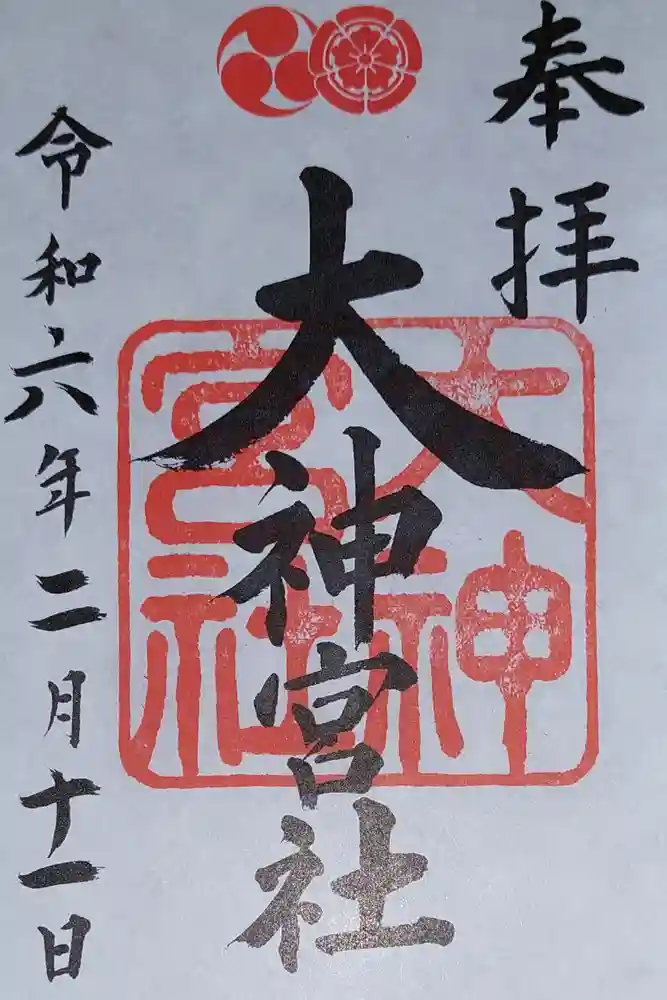 奉拝
大神宮社
大神宮社
令和六年二月十一日